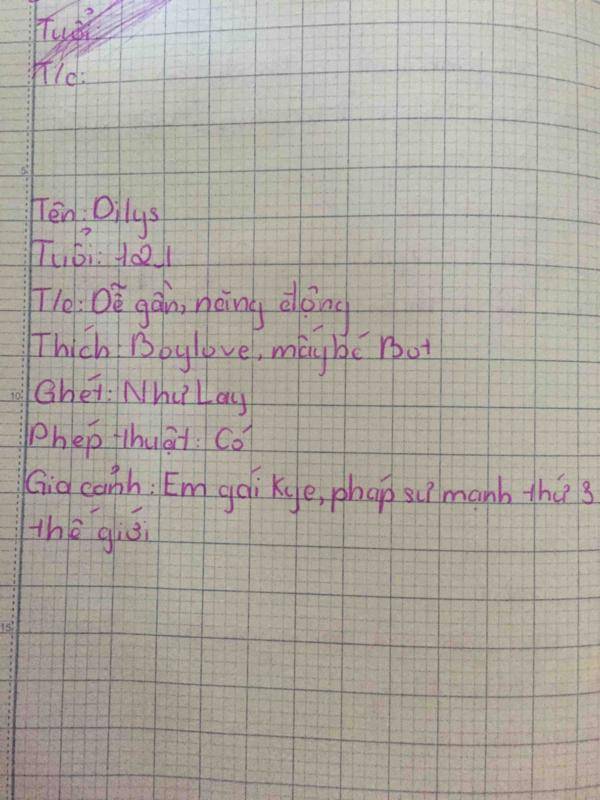 Tuổi
T/c:
Tên: Dilys
Tuổi: 121
T/c: Dễ gần, năng động
Thích: Boylove, mấy bé Bot
Ghét: Như Lay
Phép thuật: Có
Gia cảnh: Em gái Kye, pháp sư mạnh thứ 3
thế giới
5
10
15